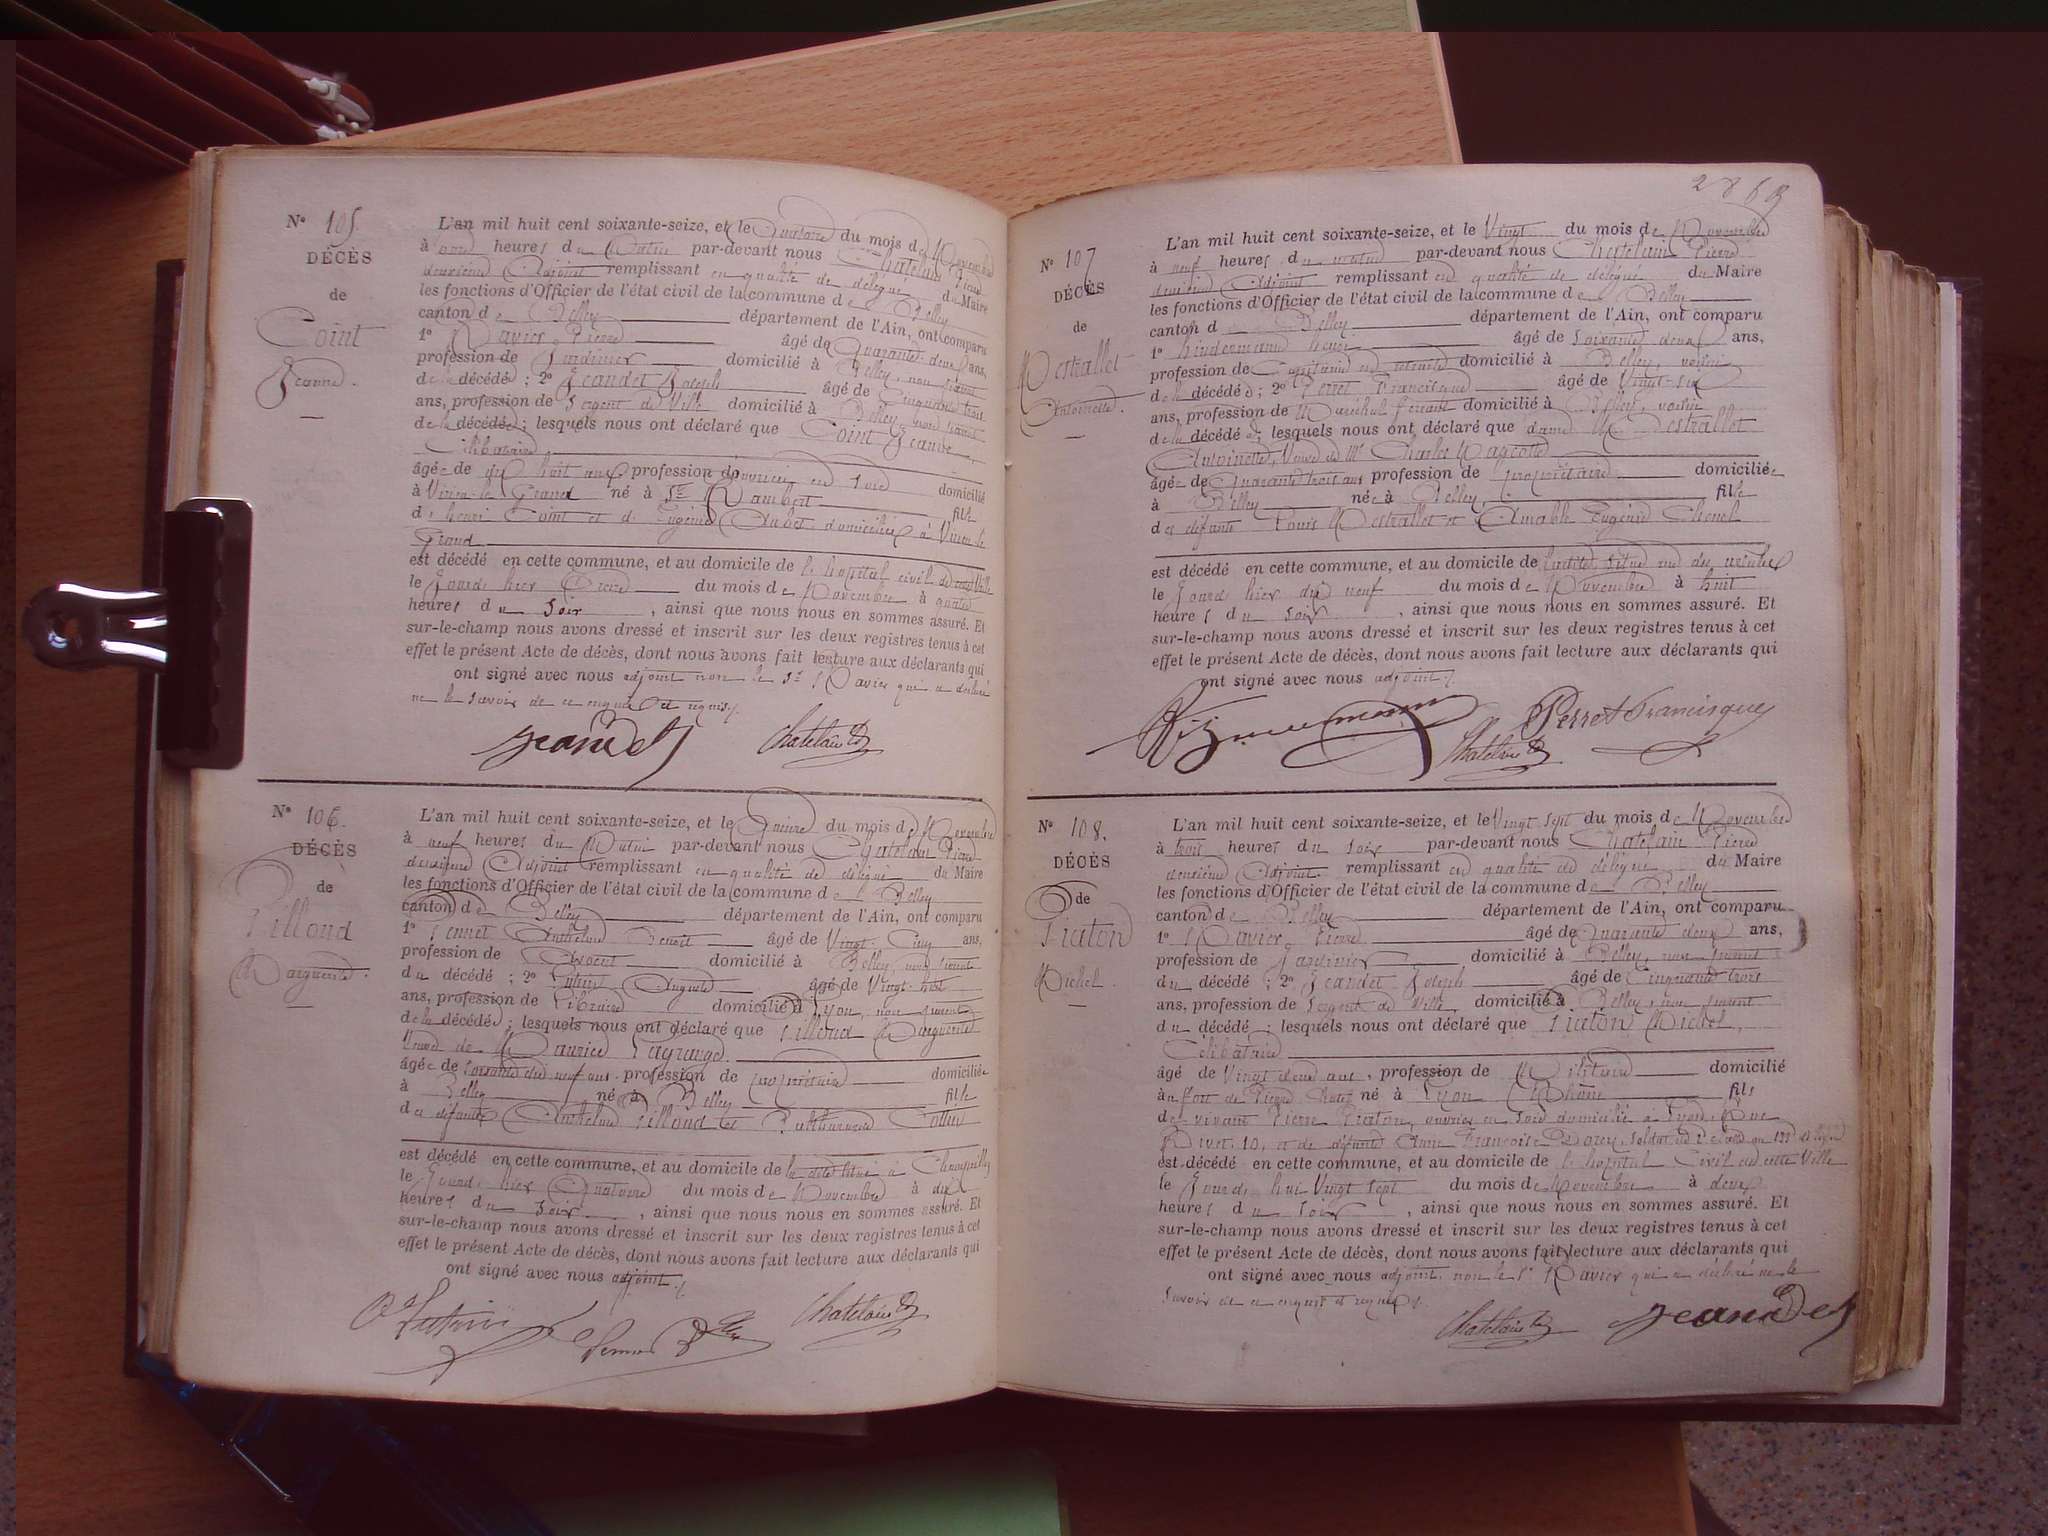 N° 105.
DÉCÈS
de
Coint
Jeanne.
L'an mil huit cent soixante-seize, et le Quatorze du mois de Novembre
à onze heures du Matin par-devant nous Chatelain Pierre
deuxième Adjoint remplissant en qualité de délégué du Maire
les fonctions d'Officier de l'état civil de la commune de Belley
canton de Belley département de l'Ain, ont comparu
1° Ravier Pierre âgé de Quarante deux ans,
profession de Jardinier domicilié à Belley, non parent
de la décédée ; 2° Jeandet Joseph âgé de Cinquante trois
ans, profession de Sergent de Ville domicilié à Belley, non parent
de la décédée ; lesquels nous ont déclaré que Coint Jeanne,
Célibataire
âgée de dix huit ans profession d'ouvrière en soie domicilié
à Virieu-le Grand né à St Rambert fille
de henri Coint et d' Eugénie domiciliés à Virieu-le
Grand
est décédé en cette commune, et au domicile de l'hopital civil de cette Ville
le Jourd. hier Treize du mois de Novembre à quatre
heures du soir, ainsi que nous nous en sommes assuré. Et
sur-le-champ nous avons dressé et inscrit sur les deux registres tenus à cet
effet le présent Acte de décès, dont nous avons fait lecture aux déclarants qui
ont signé avec nous adjoint non le Sr Ravier qui a déclaré
ne le savoir de ce enquis et requis
Jeandet Chatelain
N° 106.
DÉCÈS
de
Pillond
Marguerite.
L'an mil huit cent soixante-seize, et le Quinze du mois de Novembre
à neuf heures du Matin par-devant nous Chatelain Pierre
deuxième Adjoint remplissant en qualité de délégué du Maire
les fonctions d'Officier de l'état civil de la commune de Belley
canton de Belley département de l'Ain, ont comparu
1° Anthelme Benoit âgé de Vingt-Cinq ans,
profession de domicilié à Belley, non parent
du décédé ; 2° Auguste âgé de Vingt-huit
ans, profession de Libraire domicilié à Lyon, non parent
de la décédée ; lesquels nous ont déclaré que Pillond Marguerite
Veuve de Maurice Lagrange.
âgée de soixante dix neuf ans profession de propriétaire domiciliée
à Belley né à Belley fille
des défunts Anthelme Pillond et
est décédé en cette commune, et au domicile de la dite situé à
le Jourd. hier Quatorze du mois de Novembre à dix
heures du soir, ainsi que nous nous en sommes assuré. Et
sur-le-champ nous avons dressé et inscrit sur les deux registres tenus à cet
effet le présent Acte de décès, dont nous avons fait lecture aux déclarants qui
ont signé avec nous adjoint
Chatelain
N° 107
DÉCÈS
de
Mestrallet
Antoinette.
L'an mil huit cent soixante-seize, et le Vingt du mois de Novembre
à neuf heures du matin par-devant nous Chatelain Pierre
deuxième Adjoint remplissant en qualité de délégué du Maire
les fonctions d'Officier de l'état civil de la commune de Belley
canton de Belley département de l'Ain, ont comparu
1° âgé de soixante deux ans,
profession de Capitaine en retraite domicilié à Belley, voisin
de la décédée ; 2° Perret Francisque âgé de Vingt-six
ans, profession de Maréchal ferrant domicilié à Belley, voisin
de la décédée ; lesquels nous ont déclaré que dame Mestrallet
Antoinette, Veuve de Mr Charles
âgée de Quarante trois ans profession de propriétaire domiciliée
à Belley née à Belley fille
des défunts Louis Mestrallet et Aimable Eugénie
est décédé en cette commune, et au domicile de ladite, située rue des
le Jourd. hier dix neuf du mois de Novembre à huit
heures du soir, ainsi que nous nous en sommes assuré. Et
sur-le-champ nous avons dressé et inscrit sur les deux registres tenus à cet
effet le présent Acte de décès, dont nous avons fait lecture aux déclarants qui
ont signé avec nous adjoint
Perret Francisque
Chatelain
N° 108.
DÉCÈS
de
Piaton
Michel.
L'an mil huit cent soixante-seize, et le Vingt-Sept du mois de Novembre
à trois heures du soir par-devant nous Chatelain Pierre
deuxième Adjoint remplissant en qualité de délégué du Maire
les fonctions d'Officier de l'état civil de la commune de Belley
canton de Belley département de l'Ain, ont comparu
1° Ravier Pierre âgé de Quarante deux ans,
profession de Jardinier domicilié à Belley, non parent
du décédé ; 2° Jeandet Joseph âgé de Cinquante trois
ans, profession de Sergent de Ville domicilié à Belley, non parent
du décédé ; lesquels nous ont déclaré que Piaton Michel,
Célibataire
âgé de Vingt deux ans, profession de Militaire domicilié
au fort de Pierre Chatel né à Lyon Rhône fils
de vivant Pierre Piaton, ouvrier en soie domicilié à Lyon, Rue
10, et de défunte Anne Françoise soldat
est décédé en cette commune, et au domicile de l'hopital Civil de cette Ville
le Jourd. hui Vingt sept du mois de Novembre à deux
heures du soir, ainsi que nous nous en sommes assuré. Et
sur-le-champ nous avons dressé et inscrit sur les deux registres tenus à cet
effet le présent Acte de décès, dont nous avons fait lecture aux déclarants qui
ont signé avec nous adjoint. non le Sr Ravier qui a déclaré ne le
savoir de ce enquis et requis
Chatelain Jeandet